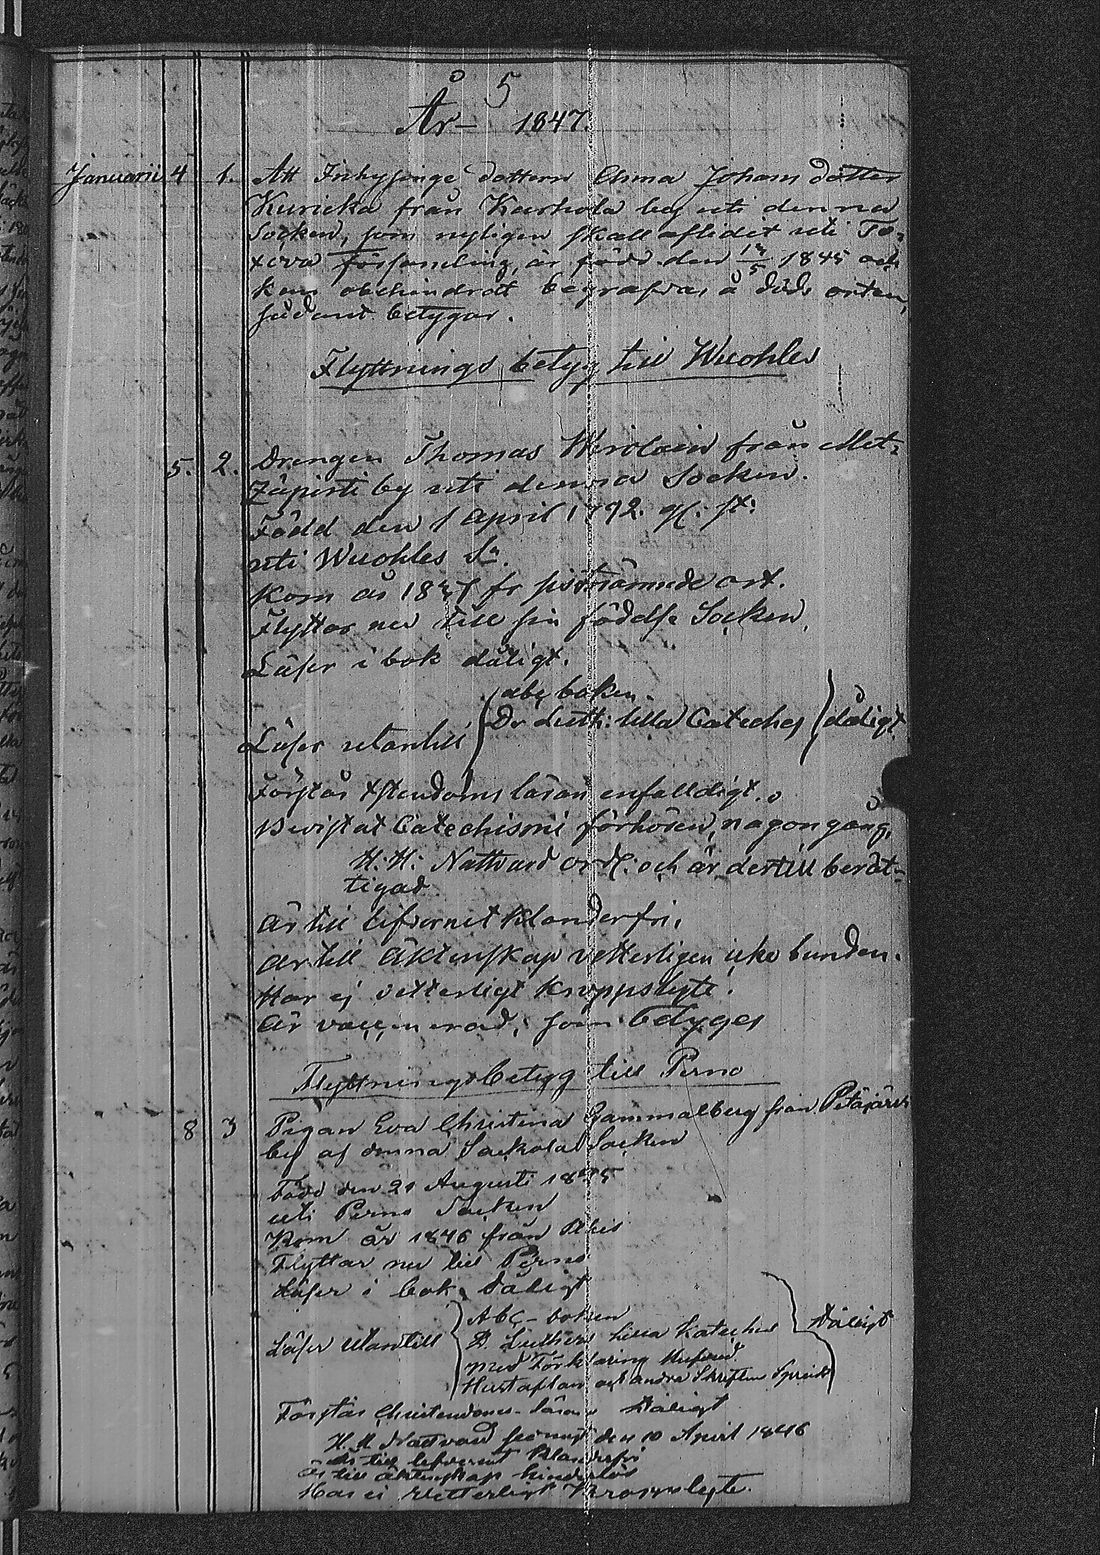 5
År 1847.
Januarii 4 1. Att Inhysinge dottern Anna Johans dotter
Kuricka från Karhola by uti denna
Socken, som nyligen skall aflidit uti
församling, är född den 1845 och
kan obehindradt begrafvas å döds orten,
sådant betygar.
Flyttnings betyg till Wuohles
5. 2. Drengen Thomas Wirolain från Met-
zäpirti by uti denna Socken.
Född den 1 April 1792. gl. st:
uti Wuohles Sn.
Kom år fr sistnämnde ort.
Flyttar nu till sin födelse Socken.
Läser i bok dåligt.
abc boken.
Läser utantill Dr Luth: lilla Cateches dåligt
Förstår Xstendoms läran enfalldigt.
Bevistat Catechismi förhören någon gång,
H. H. Nattvard och är dertill berät-
tigad
är till lefvernet klanderfri,
är till Äktenskap vetterligen icke bunden.
Har ej vetterligt kroppslyte.
är vaccinerad, som betyges
Flyttningsbetyg till Perno
8 3 Pigan Eva Christina Gammalberg från Petäjärvi
by af denna Sackola Socken
Född den 21 Augusti
uti Perno Socken
Kom år 1846 från
Flyttar nu till Perno
Läser i bok dåligt
Abc-boken
Läser utantill D. Luthers lilla Kateches Dåligt
med Förklaring
Hustaflan och andra Skriftens Språk
Förstår Christendoms läran Dåligt
H. H. Nattvard den 10 April 1846
är till lefvernet klanderfri
är till äktenskap hinderlös
Har ej vetterligt Kroppslyte.